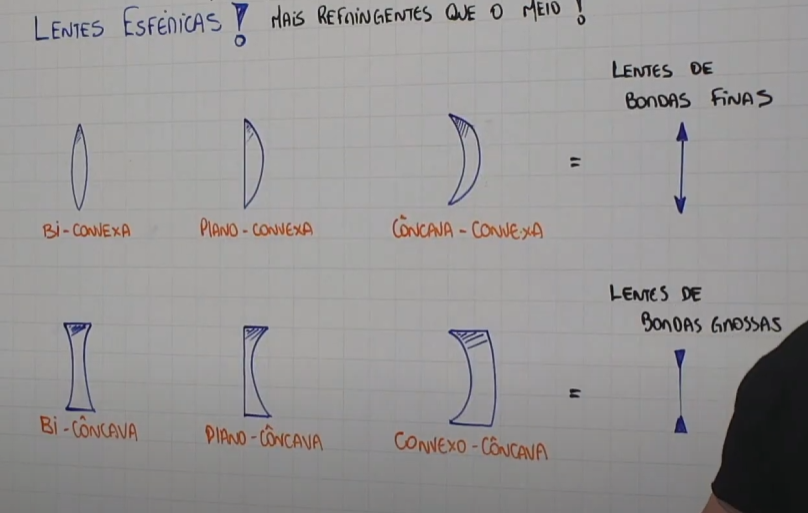 LENTES ESFÉRICAS! MAIS REFRINGENTES QUE O MEIO!
LENTES DE
BORDAS FINAS
=
BI-CONVEXA
PLANO-CONVEXA
CÔNCAVA-CONVEXA
LENTES DE
BORDAS GROSSAS
=
BI-CÔNCAVA
PLANO-CÔNCAVA
CONVEXO-CÔNCAVA